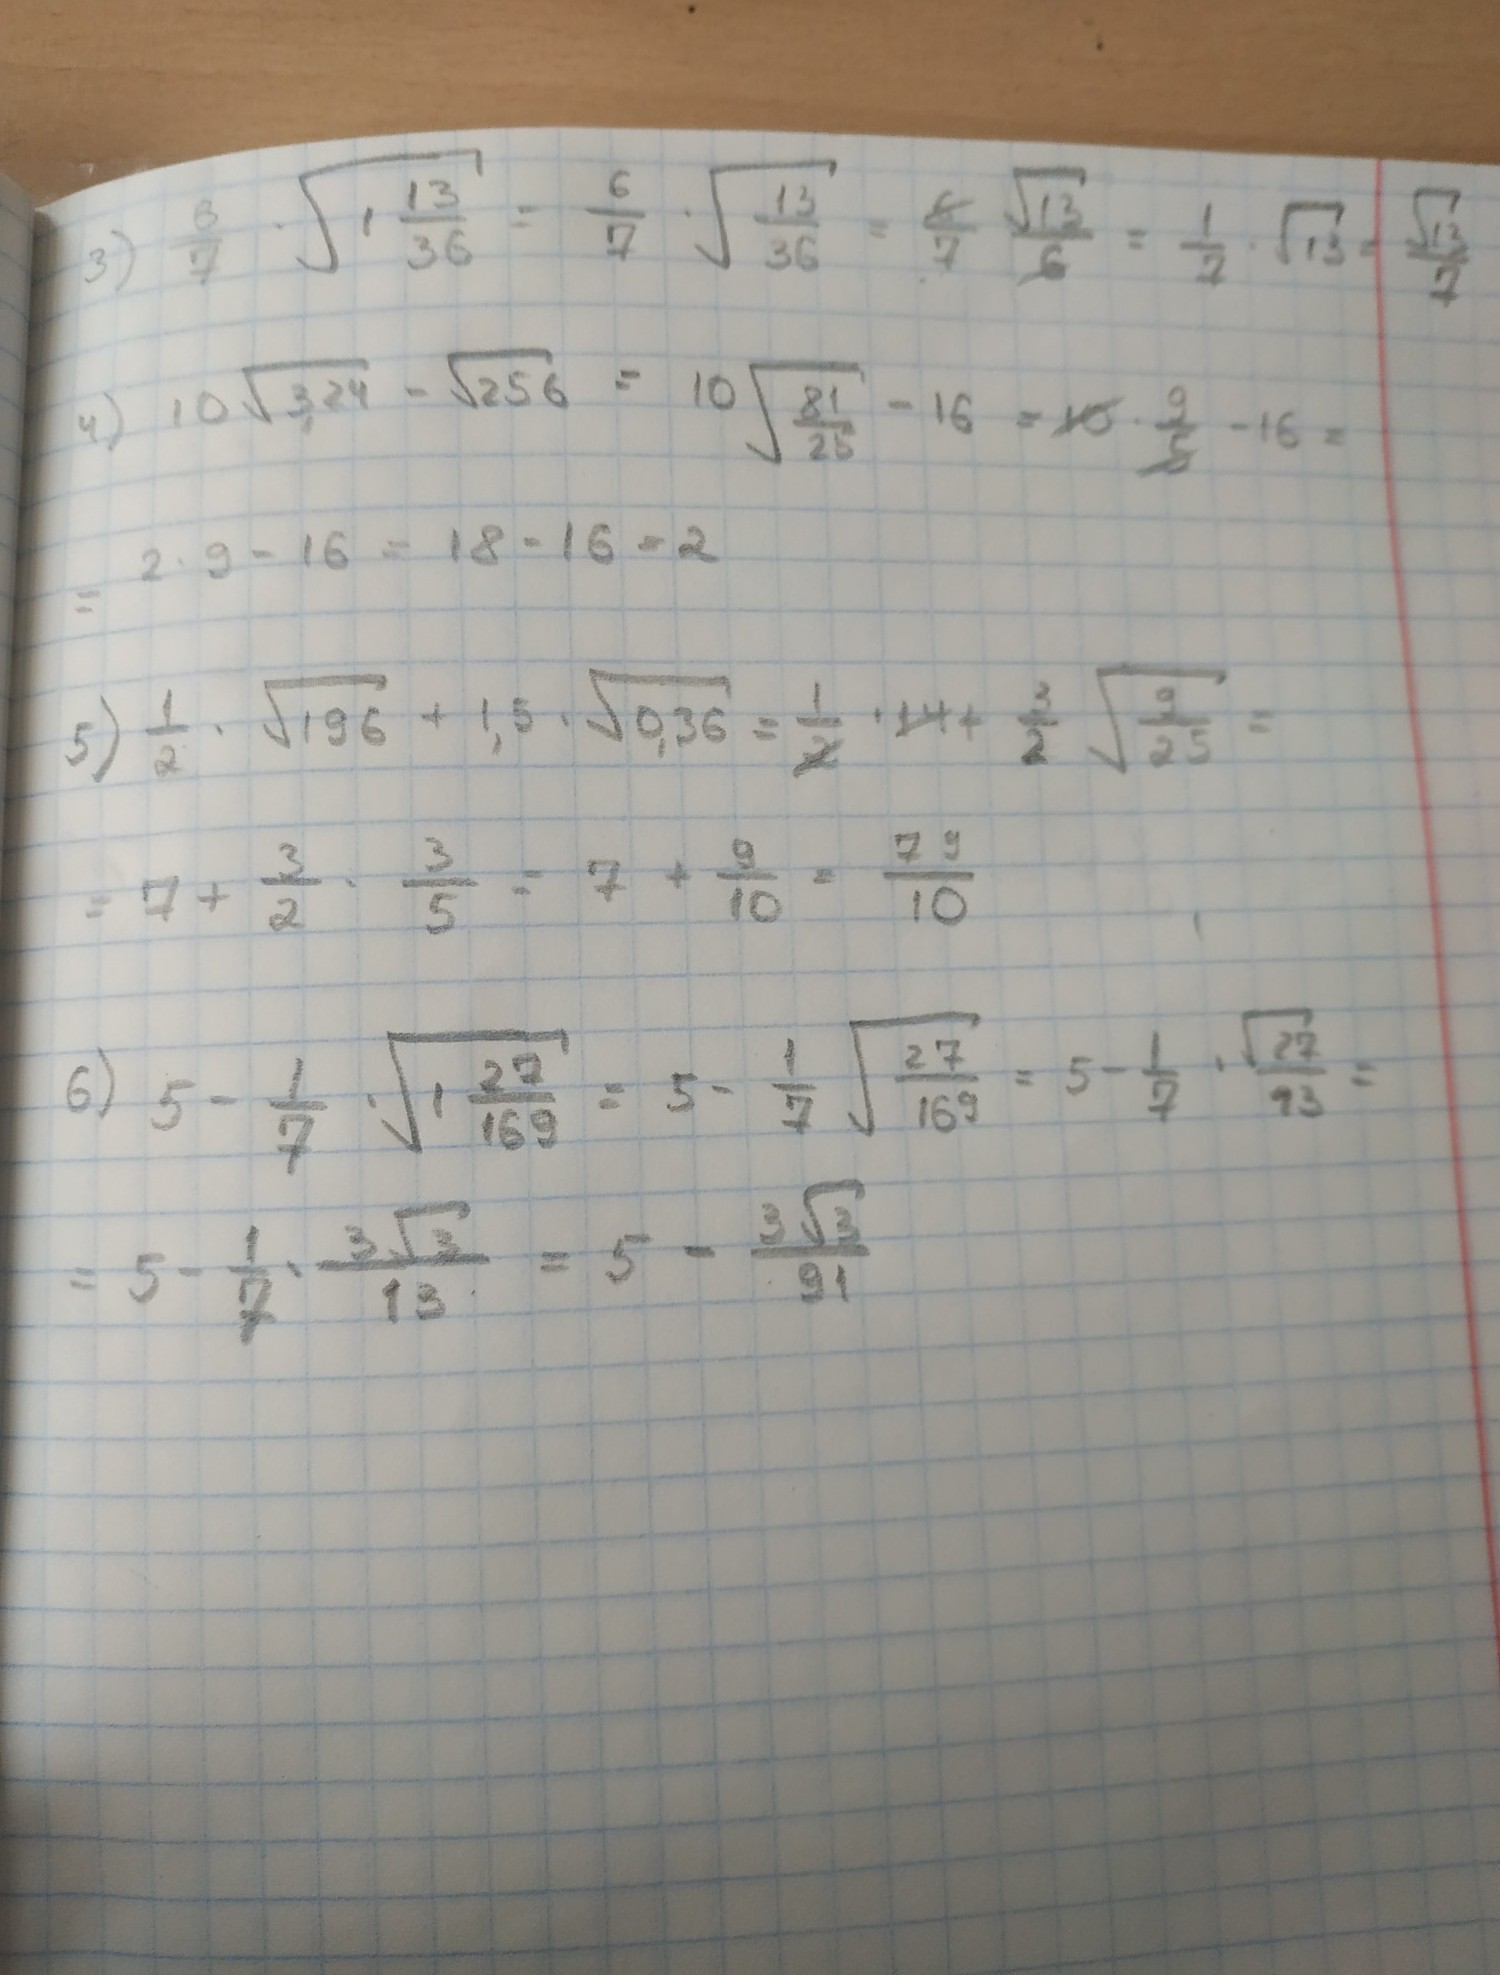 3) 6/7 · √(1 13/36) = 6/7 · √(13/36) = 6/7 √13/6 = 1/7 · √13 = √13/7
4) 10√3,24 - √256 = 10√(81/25) - 16 = 10 · 9/5 - 16 =
= 2 · 9 - 16 = 18 - 16 = 2
5) 1/2 · √196 + 1,5 · √0,36 = 1/2 · 14 + 3/2 √(9/25) =
= 7 + 3/2 · 3/5 = 7 + 9/10 = 79/10
6) 5 - 1/7 · √(1 27/169) = 5 - 1/7 √(27/169) = 5 - 1/7 · √27/13 =
= 5 - 1/7 · 3√3/13 = 5 - 3√3/91